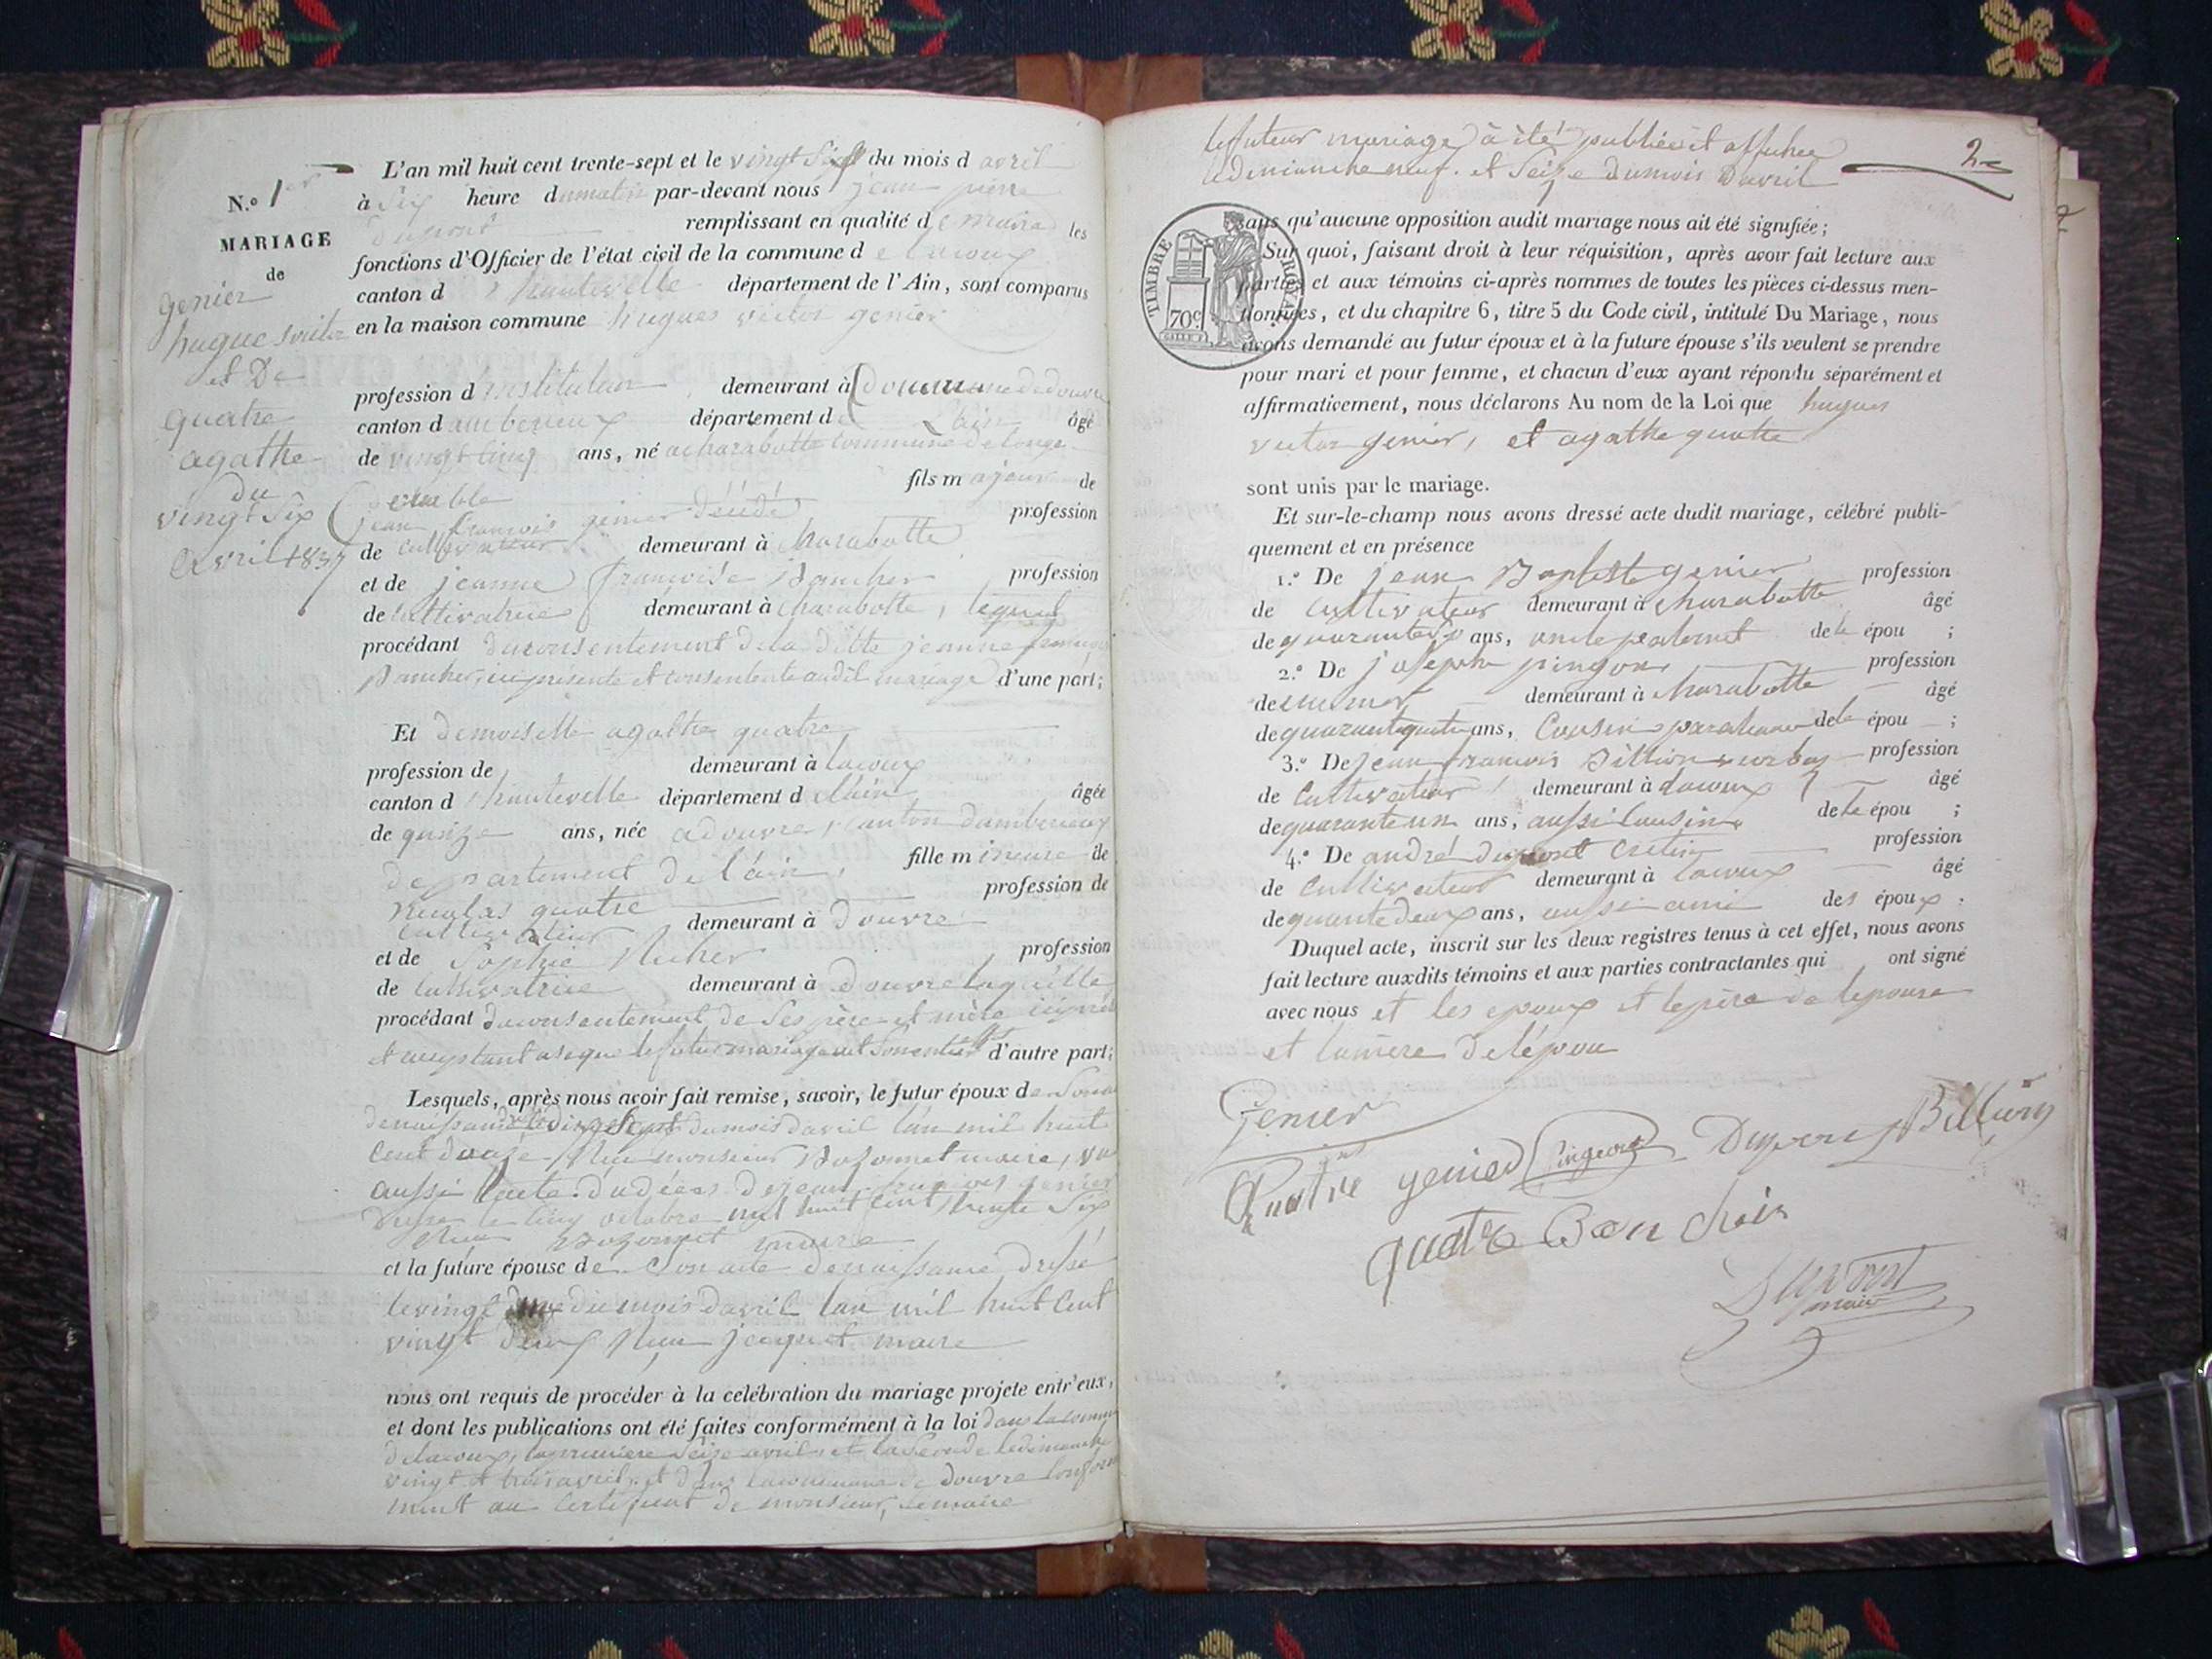 N.o 1er
MARIAGE
de
genier
hugue victor
et De
quatre
agathe
du
vingt Six
avril 1837
L'an mil huit cent trente-sept et le vingt Six du mois d avril
à Six heure du matin par-devant nous jean pierre
Dupont remplissant en qualité de maire les
fonctions d'Officier de l'état civil de la commune de lacoux
canton d'hauteville département de l'Ain, sont comparus
en la maison commune hugues victor genier
profession d'instituteur demeurant à de douvre
canton d'amberieux département de Lain âgé
de vingt cinq ans, né a charabotte commune de longe
combe fils majeur de
jean françois genier décédé profession
de cultivateur demeurant à charabotte
et de jeanne françoise profession
de cultivatrice demeurant à charabotte, lequel
procédant du consentement de la ditte jeanne françoise
ici présente et consentente audit mariage d'une part;
Et demoiselle agathe quatre
profession de demeurant à lacoux
canton d'hauteville département de l'ain âgée
de quinze ans, née a douvre, canton damberieux
departement de l'ain, fille mineure de
nicolas quatre profession de
cultivateur demeurant à douvre
et de Sophie profession
de cultivatrice demeurant à douvre laquelle
procédant du consentement de Ses père et mère
et acceptant a ce que le futur mariage ait d'autre part;
Lesquels, après nous avoir fait remise, savoir, le futur époux de Son acte
de naissance le dix Sept du mois davril l'an mil huit
cent douze, monsieur maire, vu
aussi lacte de décès de jean françois genier
le cinq octobre mil huit cent trente Six
maire
et la future épouse de Son acte de naissance dressé
le vingt du mois davril lan mil huit cent
vingt deux jacquet maire
nous ont requis de procéder à la celébration du mariage projete entr'eux,
et dont les publications ont été faites conformément à la loi dans la commune
de lacoux, la premiere Seize avril et la Seconde le dimanche
vingt et trois avril et dans la commune de douvre conformé
ment au certificat de monsieur, le maire
2e
le futeur mariage à été publiée et affichee
le dimanche neuf. et Seize du mois davril
TIMBRE ROYAL
70c
sans qu'aucune opposition audit mariage nous ait été signifiée;
Sur quoi, faisant droit à leur réquisition, après avoir fait lecture aux
parties et aux témoins ci-après nommes de toutes les pièces ci-dessus men-
tionnées, et du chapitre 6, titre 5 du Code civil, intitulé Du Mariage, nous
avons demandé au futur époux et à la future épouse s'ils veulent se prendre
pour mari et pour femme, et chacun d'eux ayant répondu séparément et
affirmativement, nous déclarons Au nom de la Loi que hugues
victor genier, et agathe quatre
sont unis par le mariage.
Et sur-le-champ nous avons dressé acte dudit mariage, célébré publi-
quement et en présence
1.o De jean Baptiste genier profession
de cultivateur demeurant à charabotte âgé
de ans, oncle paternel de le épou ;
2.o De joseph pingeon profession
de demeurant à charabotte âgé
de quarante quatre ans, Cousin de le épou ;
3.o De jean françois Billion profession
de cultivateur demeurant à lacoux âgé
de quarante un ans, aussi Cousin de le épou ;
4.o De andré dupont cretin profession
de cultivateur demeurant à lacoux âgé
de deux ans, aussi ami des époux.
Duquel acte, inscrit sur les deux registres tenus à cet effet, nous avons
fait lecture auxdits témoins et aux parties contractantes qui ont signé
avec nous et les epoux et le père de lepouse
et la mère de l'épou
Genier
Quatre genier pingeon Dupont Billion
quatre
Dupont
maire